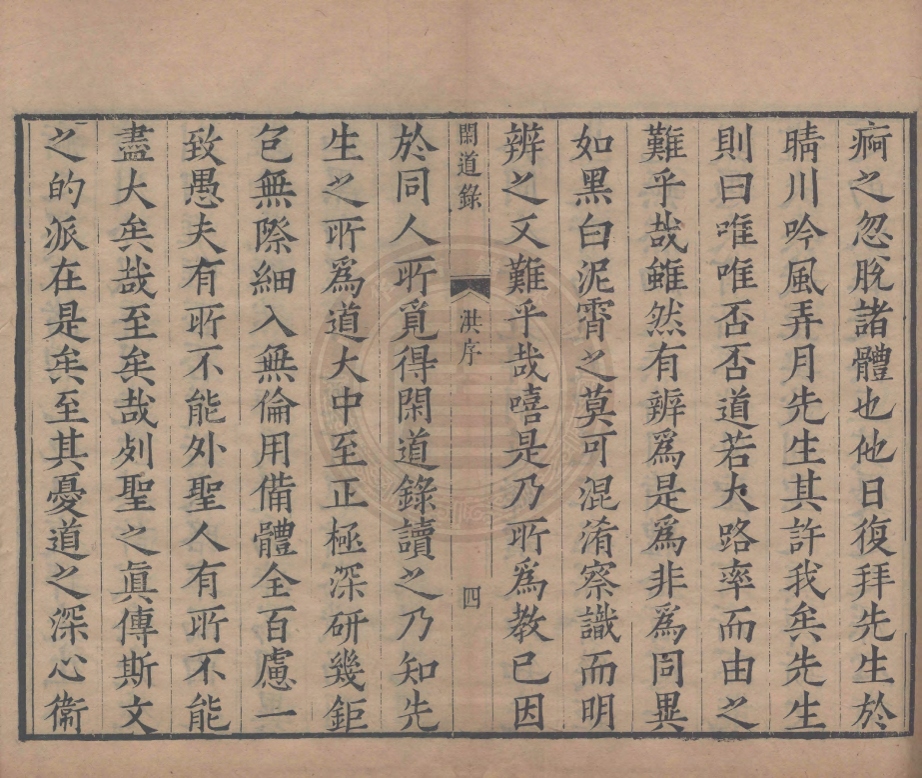 痾之忽脫諸體也他日復拜先生於
晴川吟風弄月先生其許我矣先生
則曰唯唯否否道若大路率而由之
難乎哉雖然有辨爲是爲非爲同異
如黑白泥霄之莫可混淆察識而明
辨之又難乎哉嘻是乃所爲教已因
閑道錄 洪序 四
於同人所覓得閑道錄讀之乃知先
生之所爲道大中至正極深研幾鉅
包無際細入無倫用備體全百慮一
致愚夫有所不能外聖人有所不能
盡大矣哉至矣哉列聖之眞傳斯文
之的派在是矣至其憂道之深心衞